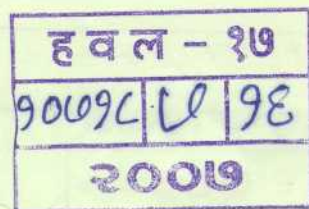 ह व ल - १७
१०७१८ ७ १६
२००७